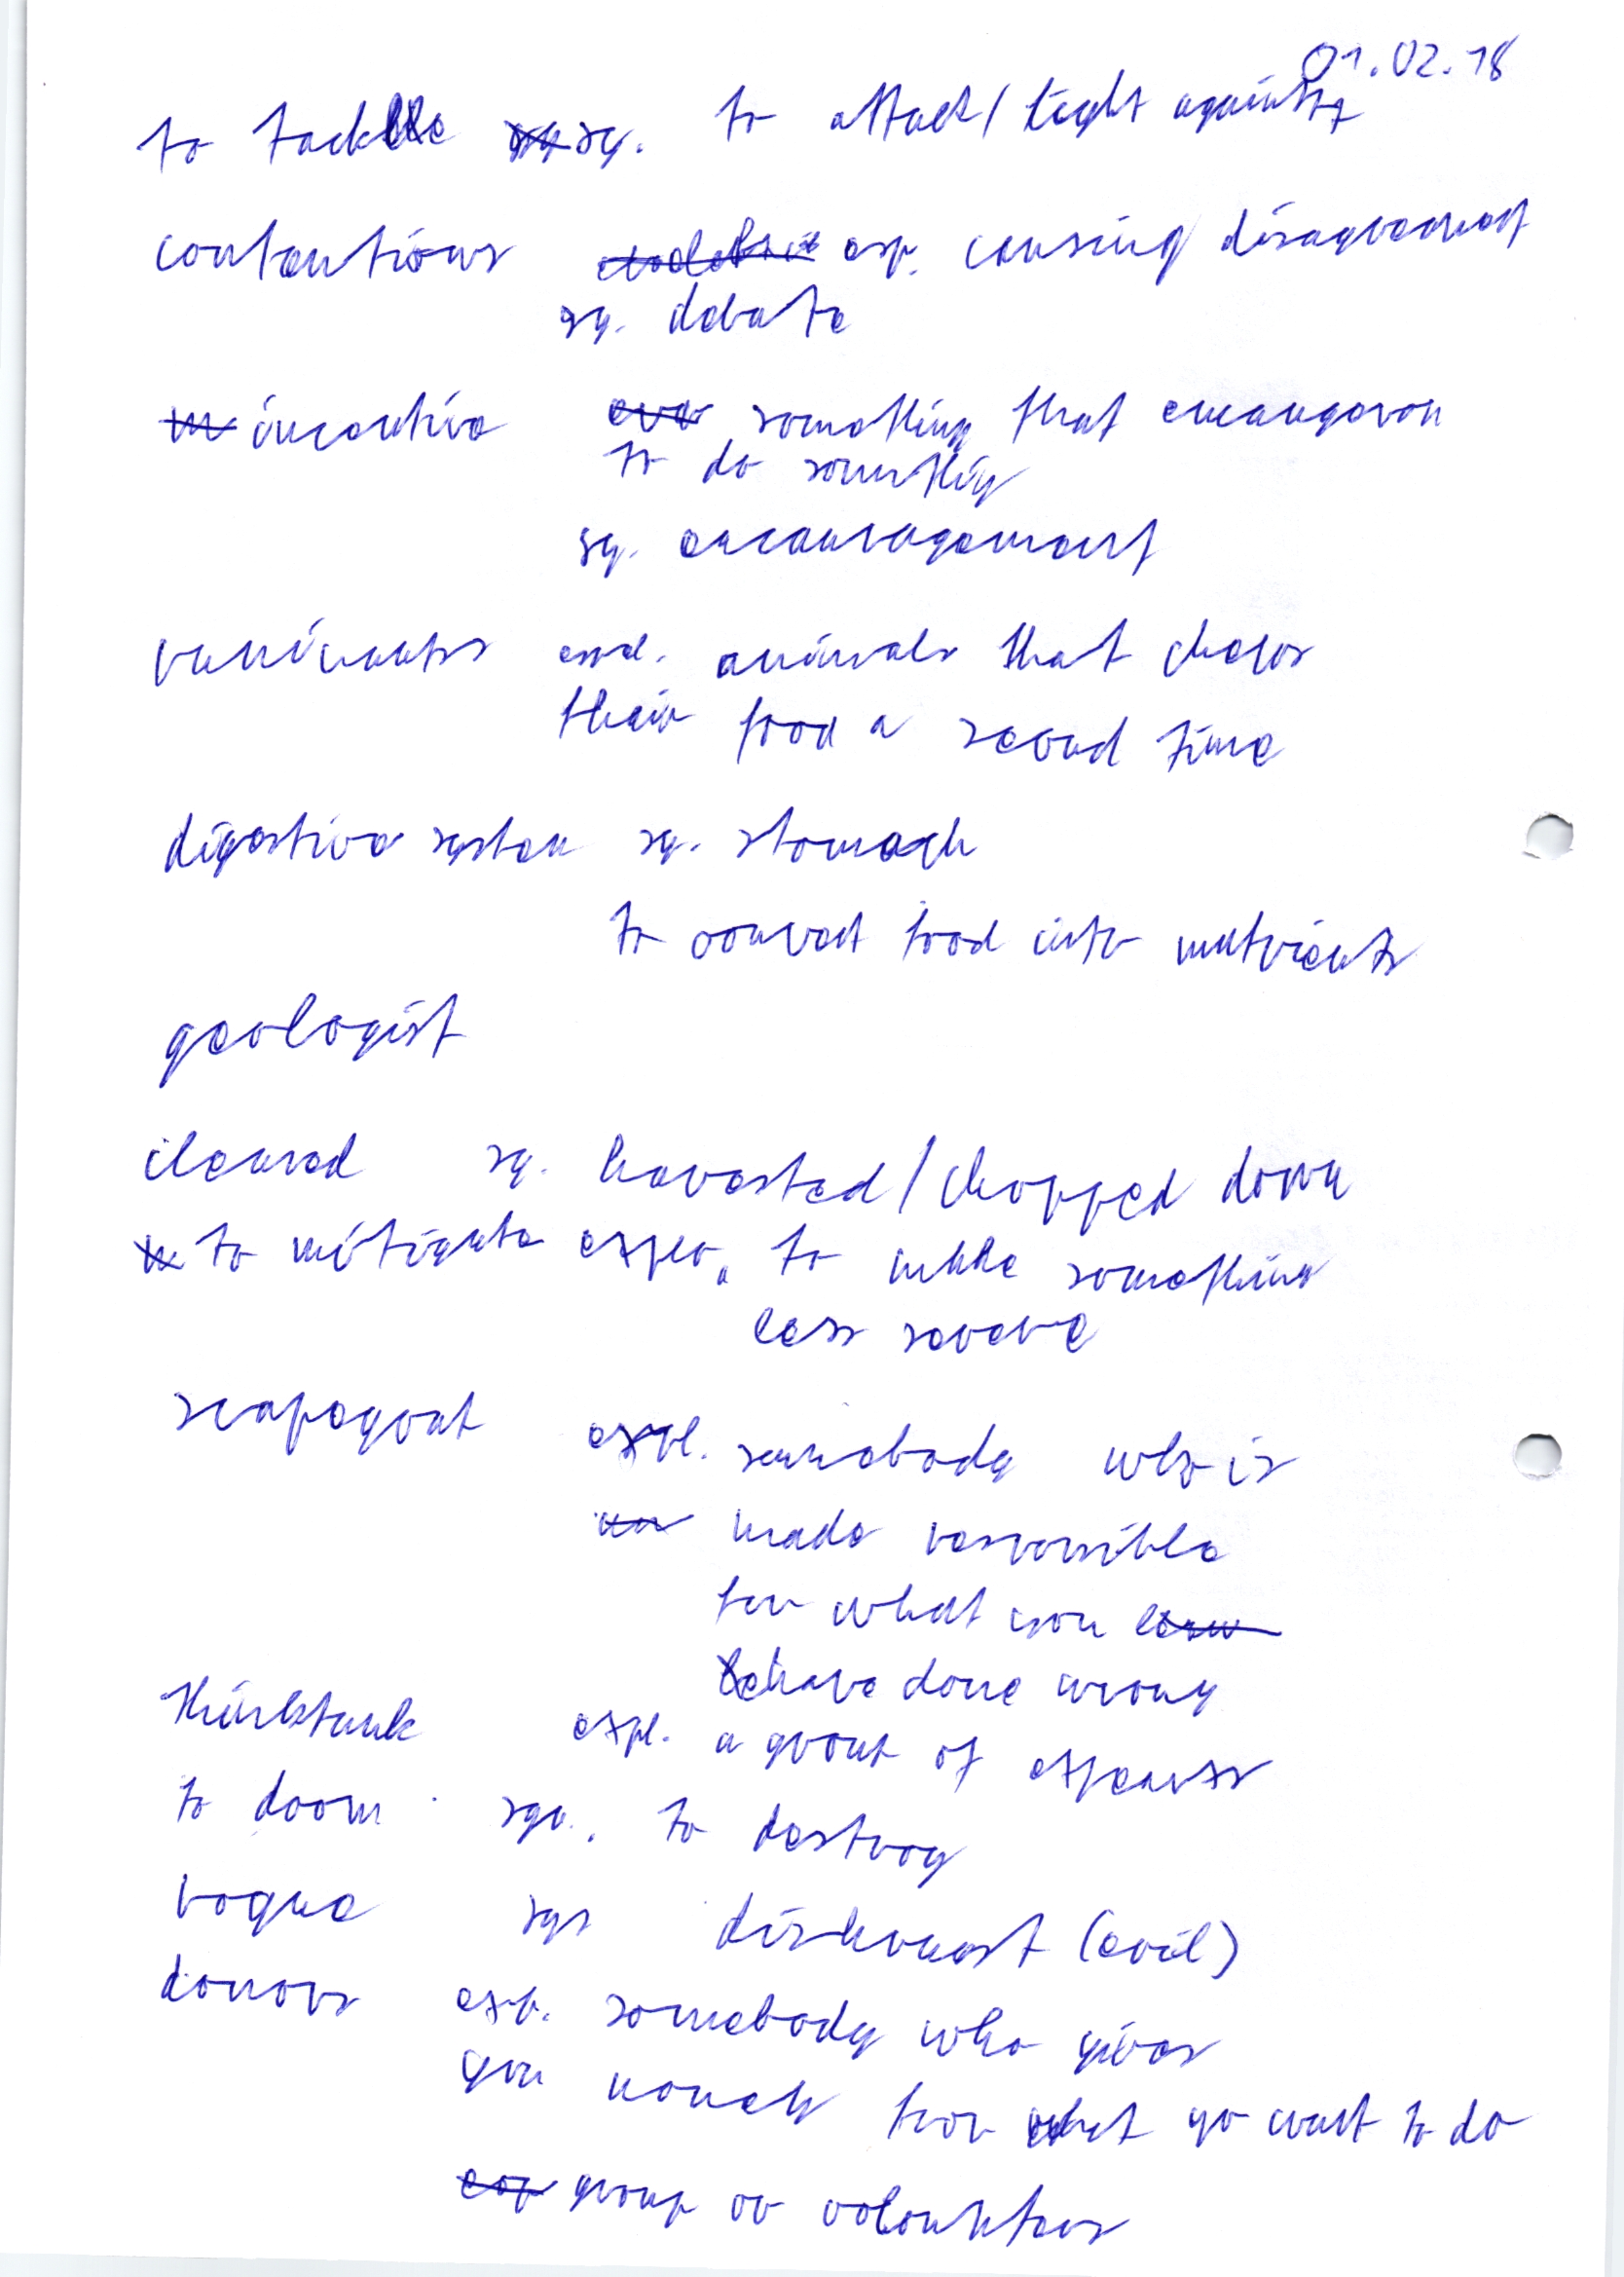 01.02.18
to tackle sy. to attack / fight against
contentious exp. causing disagreement
sy. debate
incentive something that encourages
to do something
sy. encouragement
ruminants expl. animals that chews
their food a second time
digestive system sy. stomach
to convert food into nutrients
geologist
cleared sy. harvested / chopped down
to mitigate expl. to make something
less severe
scapegoat expl. somebody who is
made responsible
for what you
have done wrong
thinktank expl. a group of experts
to doom syn. to destroy
rogue syn dishonest (evil)
donors exp. somebody who gives
you money for what yo want to do
group or volounteers